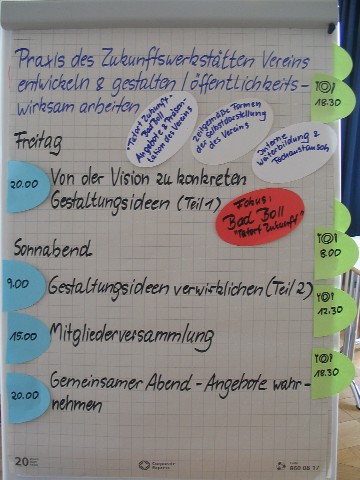 Praxis des Zukunftswerkstätten Vereins
entwickeln & gestalten / öffentlichkeits-
wirksam arbeiten
"Tatort Zukunft"
Bad Boll
Angebote & Präsen-
tation des Vereins
zeitgemäße Formen
der Selbstdarstellung
des Vereins
Interne
Weiterbildung &
Fachaustausch
18.30
Freitag
20.00
Von der Vision zu konkreten
Gestaltungsideen (Teil 1)
Fokus:
Bad Boll
"Tatort Zukunft"
Sonnabend
8.00
9.00
Gestaltungsideen verwirklichen (Teil 2)
12.30
15.00
Mitgliederversammlung
18.30
20.00
Gemeinsamer Abend - Angebote wahr-
nehmen
20